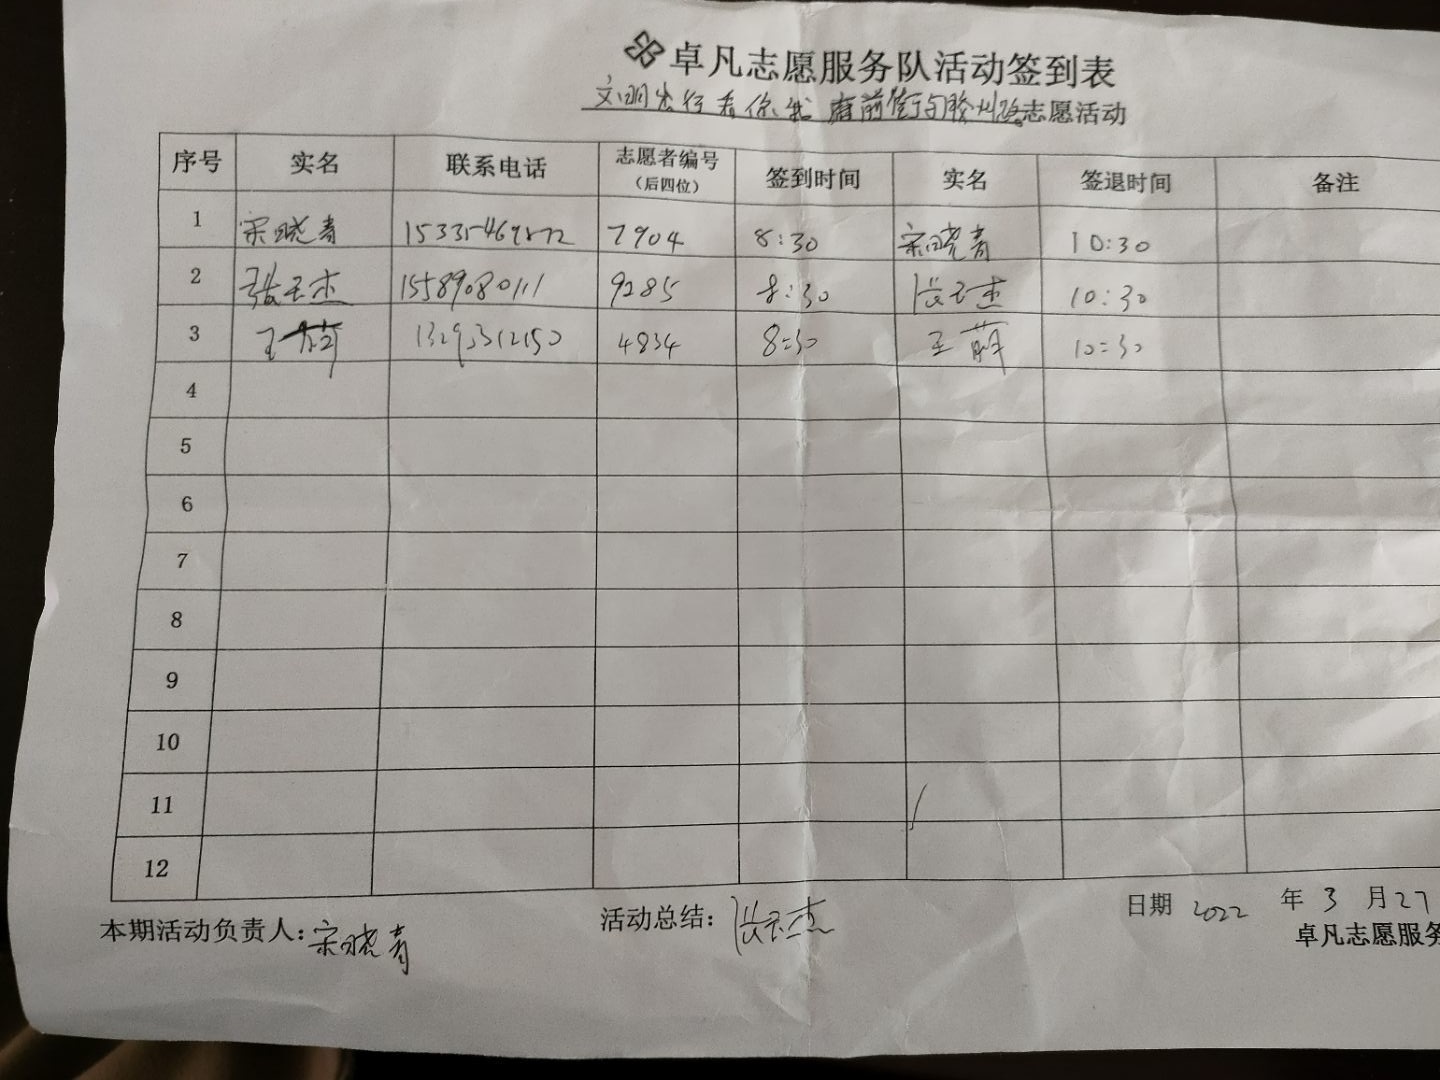 卓凡志愿服务队活动签到表
文明出行看你我 府前街与胶州路志愿活动
序号 实名 联系电话 志愿者编号（后四位） 签到时间 实名 签退时间 备注
1 宋晓青 7904 8:30 宋晓青 10:30
2 张玉杰 15589080111 9285 8:30 张玉杰 10:30
3 王萌 13293312150 4834 8:30 王萌 10:30
4
5
6
7
8
9
10
11
12
本期活动负责人：宋晓青 活动总结：张玉杰 日期 2022 年 3 月 27
卓凡志愿服务